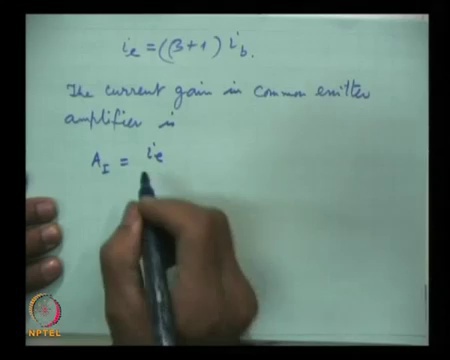 ie = (β+1) ib.
The current gain in common emitter
amplifier is
AI = ie
NPTEL